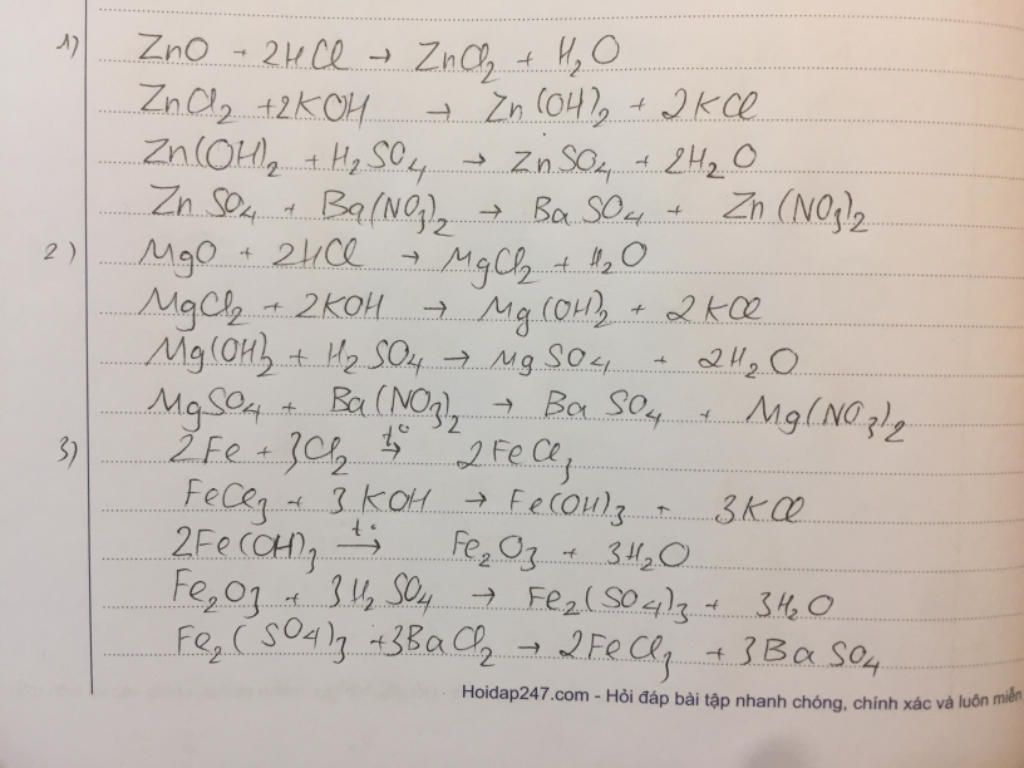 1) ZnO + 2HCl → ZnCl₂ + H₂O
ZnCl₂ +2KOH → Zn(OH)₂ + 2KCl
Zn(OH)₂ + H₂SO₄ → ZnSO₄ + 2H₂O
ZnSO₄ + Ba(NO₃)₂ → BaSO₄ + Zn(NO₃)₂
2) MgO + 2HCl → MgCl₂ + H₂O
MgCl₂ + 2KOH → Mg(OH)₂ + 2KCl
Mg(OH)₂ + H₂SO₄ → MgSO₄ + 2H₂O
MgSO₄ + Ba(NO₃)₂ → BaSO₄ + Mg(NO₃)₂
3) 2Fe + 3Cl₂ →(t°) 2FeCl₃
FeCl₃ + 3KOH → Fe(OH)₃ + 3KCl
2Fe(OH)₃ →(t°) Fe₂O₃ + 3H₂O
Fe₂O₃ + 3H₂SO₄ → Fe₂(SO₄)₃ + 3H₂O
Fe₂(SO₄)₃ +3BaCl₂ → 2FeCl₃ + 3BaSO₄
Hoidap247.com - Hỏi đáp bài tập nhanh chóng, chính xác và luôn miễn